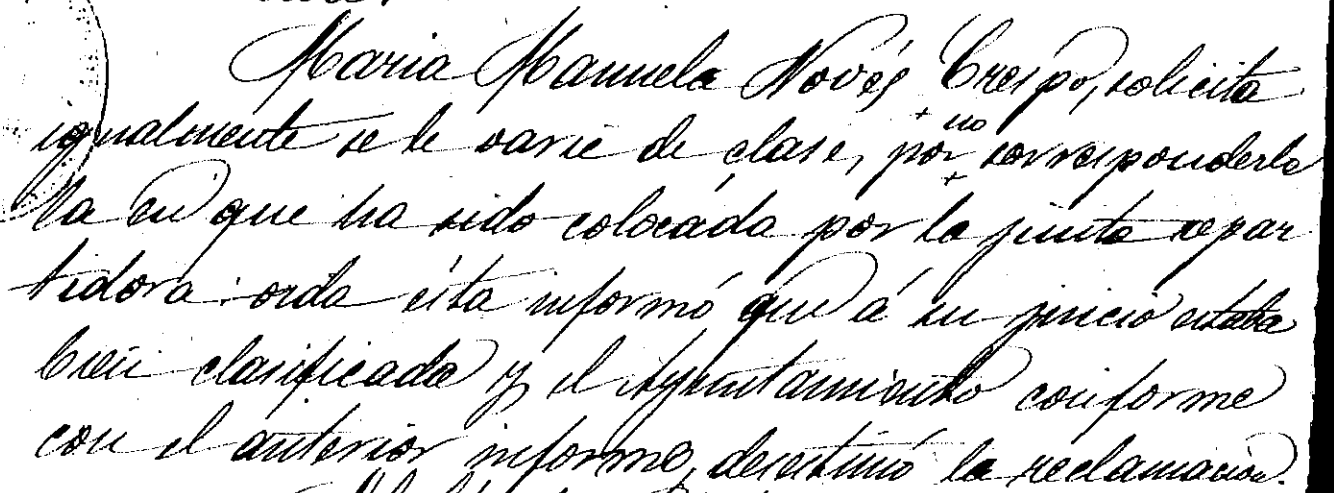 Maria Manuela Novés Crespo, solicita
igualmente se le varie de clase, por no corresponderle
la en que ha sido colocada por la junta repar
tidora: oida ésta informó que á su juicio estaba
bien clasificada y el Ayuntamiento conforme
con el anterior informe, desestimó la reclamacion.